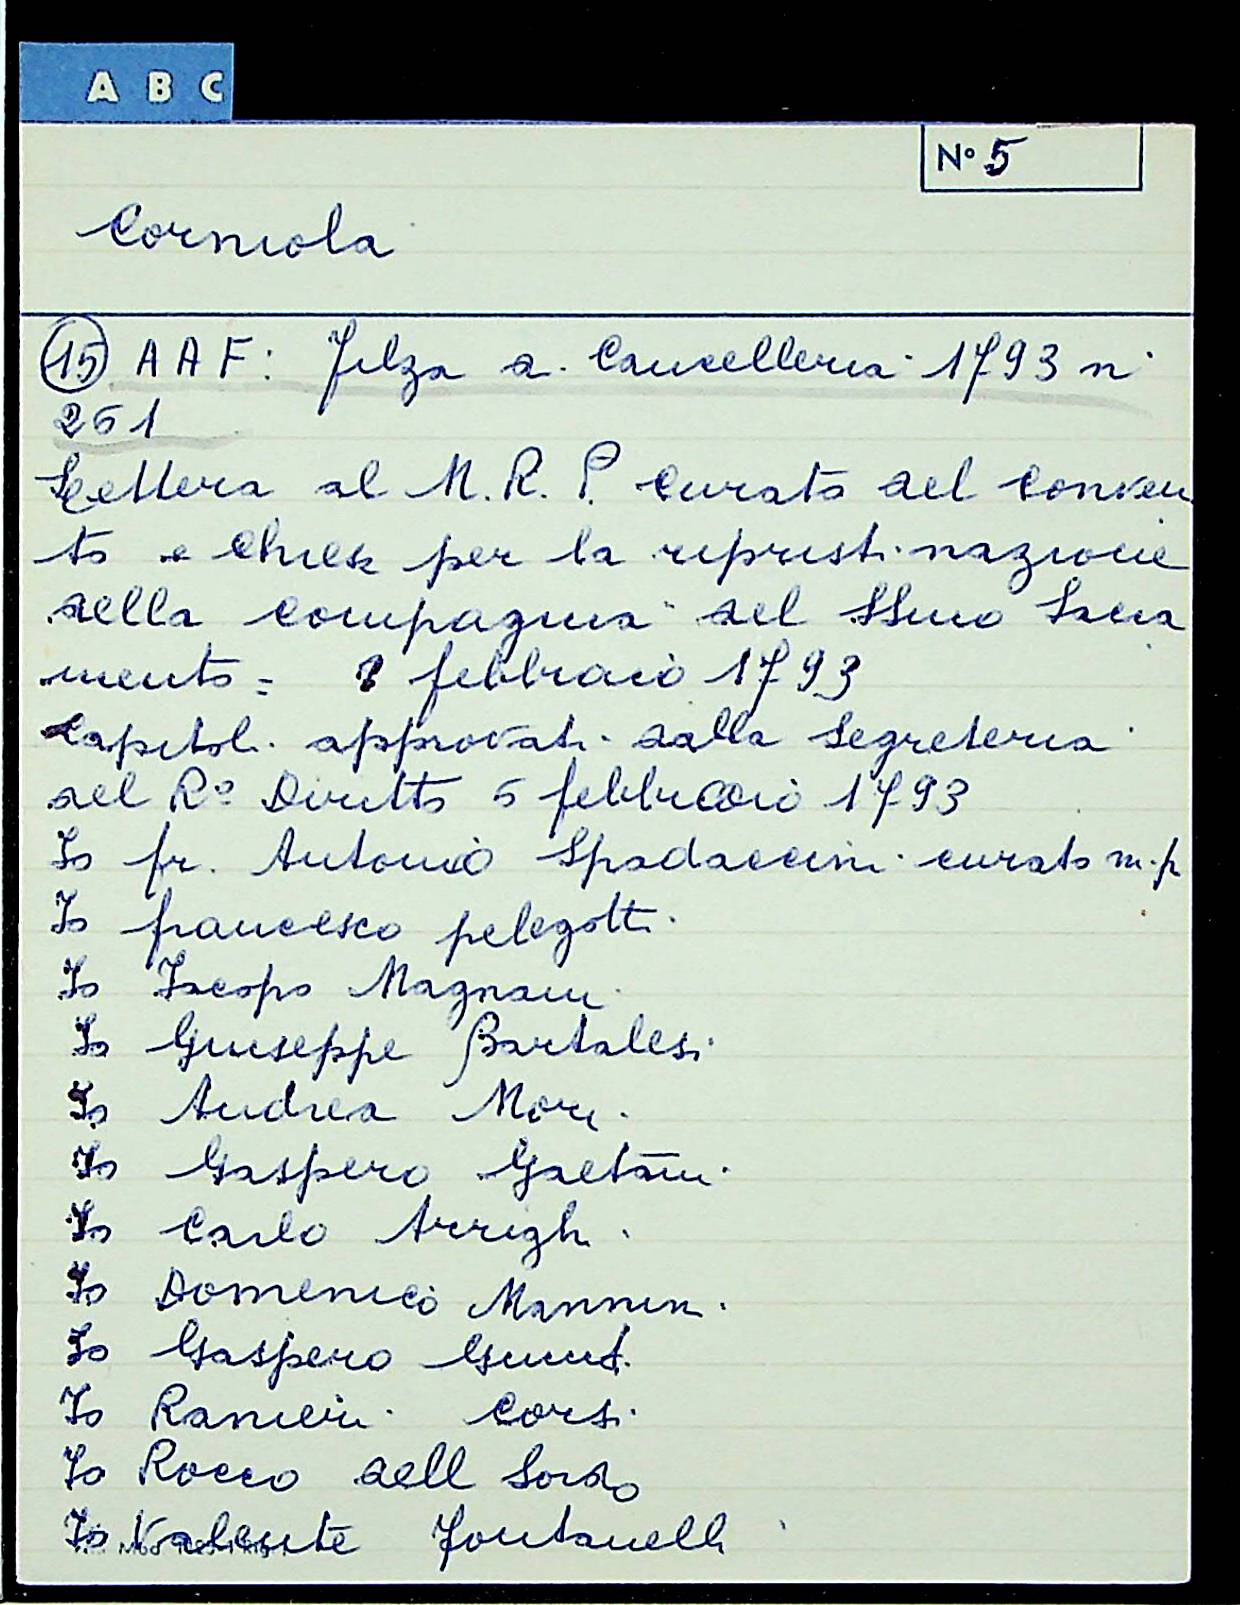 A B C
Nº 5
Corniola
15 A A F: Filza a. Cancelleria 1793 n
251
Lettera al M. R. P. curato del conven
to e Chiesa per la ripristinazione
della compagnia del SSmo Sacra
mento = febbraio 1793
Capitoli approvati dalla segreteria
del Rº Diritto 5 febbraio 1793
Io fr. Antonio Spadaccini curato m.p
Io francesco pelegotti
Io Iacopo Magnani
Io Giuseppe Bartalesi
Io Andrea Mori
Io Gaspero Gaetani
Io Carlo Arrighi
Io Domenico Mannini
Io Gaspero
Io Ranieri Corsi
Io Rocco dell Sordo
Io Valente Fontanelli